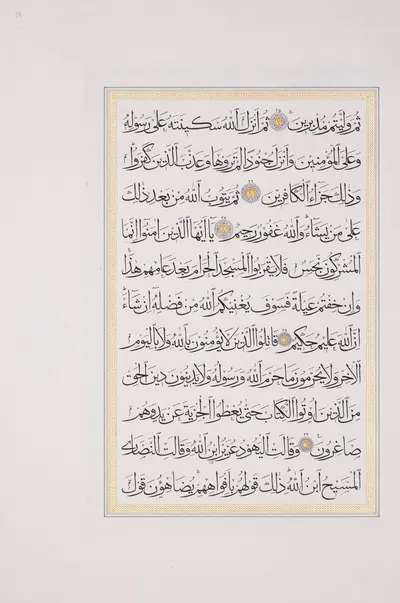 ثم وليتم مدبرين ثم أنزل الله سكينته على رسوله
وعلى المؤمنين وأنزل جنودا لم تروها وعذب الذين كفروا
وذلك جزاء الكافرين ثم يتوب الله من بعد ذلك
على من يشاء والله غفور رحيم يا أيها الذين آمنوا إنما
المشركون نجس فلا يقربوا المسجد الحرام بعد عامهم هذا
وإن خفتم عيلة فسوف يغنيكم الله من فضله إن شاء
إن الله عليم حكيم قاتلوا الذين لا يؤمنون بالله ولا باليوم
الآخر ولا يحرمون ما حرم الله ورسوله ولا يدينون دين الحق
من الذين أوتوا الكتاب حتى يعطوا الجزية عن يد وهم
صاغرون وقالت اليهود عزير ابن الله وقالت النصارى
المسيح ابن الله ذلك قولهم بأفواههم يضاهؤن قول